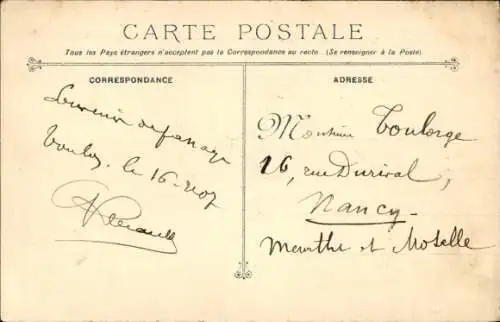 CARTE POSTALE
Tous les Pays étrangers n'acceptent pas la Correspondance au recto. (Se renseigner à la Poste)
CORRESPONDANCE
ADRESSE
Souvenir de passage
Toulon, le 16-2-07
Monsieur Toulorge
26, rue Durival,
Nancy
Meurthe et Moselle